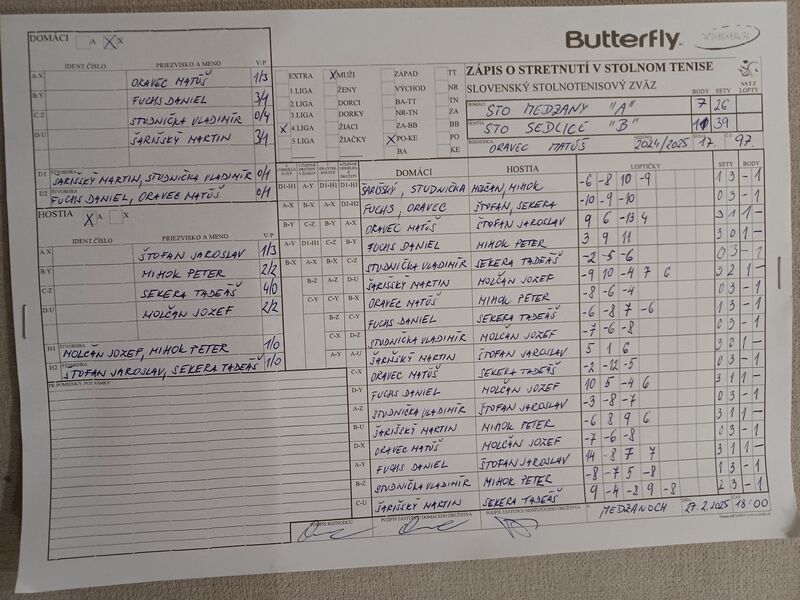 Butterfly
DOMÁCI A X X
IDENT. ČÍSLO PRIEZVISKO A MENO V/P
A-X ORAVEC MATÚŠ 1/3
B-Y FUCHS DANIEL 3/1
C-Z STUDNIČKA VLADIMÍR 0/4
D-U ŠARIŠSKÝ MARTIN 3/1
D1 ŠTVORHRA ŠARIŠSKÝ MARTIN, STUDNIČKA VLADIMÍR 0/1
D2 ŠTVORHRA FUCHS DANIEL, ORAVEC MATÚŠ 0/1
HOSTIA X A X
IDENT. ČÍSLO PRIEZVISKO A MENO V/P
A-X ŠTOFAN JAROSLAV 1/3
B-Y MIHOK PETER 2/2
C-Z SEKERA TADEÁŠ 4/0
D-U MOLČAN JOZEF 2/2
H1 ŠTVORHRA MOLČAN JOZEF, MIHOK PETER 1/0
H2 ŠTVORHRA ŠTOFAN JAROSLAV, SEKERA TADEÁŠ 1/0
PRIPOMIENKY, POZNÁMKY
EXTRA X MUŽI ZÁPAD TT
1.LIGA ŽENY VÝCHOD NR
2.LIGA DORCI BA-TT TN
3.LIGA DORKY NR-TN ZA
X 4.LIGA ŽIACI ZA-BB BB
5 LIGA ŽIAČKY X PO-KE PO
BA KE
ZÁPIS O STRETNUTÍ V STOLNOM TENISE
SLOVENSKÝ STOLNOTENISOVÝ ZVÄZ
BODY SETY LOPTY
DOMÁCI STO MEDZANY "A" 7 26
HOSTIA STO SEDLICE "B" 11 39
ORAVEC MATÚŠ 2024/2025 17. 97.
DOMÁCI HOSTIA LOPTIČKY SETY BODY
D1-H1 A-Y D1-H1 D1-H1 ŠARIŠSKÝ, STUDNIČKA MOLČAN, MIHOK -6 -8 10 -9 1 3 - 1
A-X B-X A-X D2-H2 FUCHS, ORAVEC ŠTOFAN, SEKERA -10 -9 -10 0 3 - 1
B-Y C-Z B-Y A-X ORAVEC MATÚŠ ŠTOFAN JAROSLAV 9 6 -13 4 3 1 1 -
A-Y D1-H1 C-Z B-Y FUCHS DANIEL MIHOK PETER 3 9 11 3 0 1 -
B-X A-X D-U C-Z STUDNIČKA VLADIMÍR SEKERA TADEÁŠ -2 -5 -6 0 3 - 1
B-Z A-Z D-U ŠARIŠSKÝ MARTIN MOLČAN JOZEF -9 10 -4 7 6 3 2 1 -
C-Y C-Y B-X ORAVEC MATÚŠ MIHOK PETER -8 -6 -4 0 3 - 1
B-Z C-Y FUCHS DANIEL SEKERA TADEÁŠ -6 -8 7 -6 1 3 - 1
C-X D-Z STUDNIČKA VLADIMÍR MOLČAN JOZEF -7 -6 -8 0 3 - 1
A-Y A-U ŠARIŠSKÝ MARTIN ŠTOFAN JAROSLAV 5 1 6 3 0 1 -
C-X ORAVEC MATÚŠ SEKERA TADEÁŠ -2 -12 -5 0 3 - 1
D-Y FUCHS DANIEL MOLČAN JOZEF 10 5 -4 6 3 1 1 -
A-Z STUDNIČKA VLADIMÍR ŠTOFAN JAROSLAV -3 -8 -7 0 3 - 1
B-U ŠARIŠSKÝ MARTIN MIHOK PETER -6 8 9 6 3 1 1 -
D-X ORAVEC MATÚŠ MOLČAN JOZEF -7 -6 -8 0 3 - 1
A-Y FUCHS DANIEL ŠTOFAN JAROSLAV 14 -8 7 7 3 1 1 -
B-Z STUDNIČKA VLADIMÍR MIHOK PETER -8 -7 5 -8 1 3 - 1
C-U ŠARIŠSKÝ MARTIN SEKERA TADEÁŠ 9 -4 -8 9 -8 2 3 - 1
PODPIS ROZHODCU PODPIS ZÁSTUPCU DOMÁCEHO DRUŽSTVA PODPIS ZÁSTUPCU HOSŤUJÚCEHO DRUŽSTVA V MEDZANOCH 27.2.2025 18:00